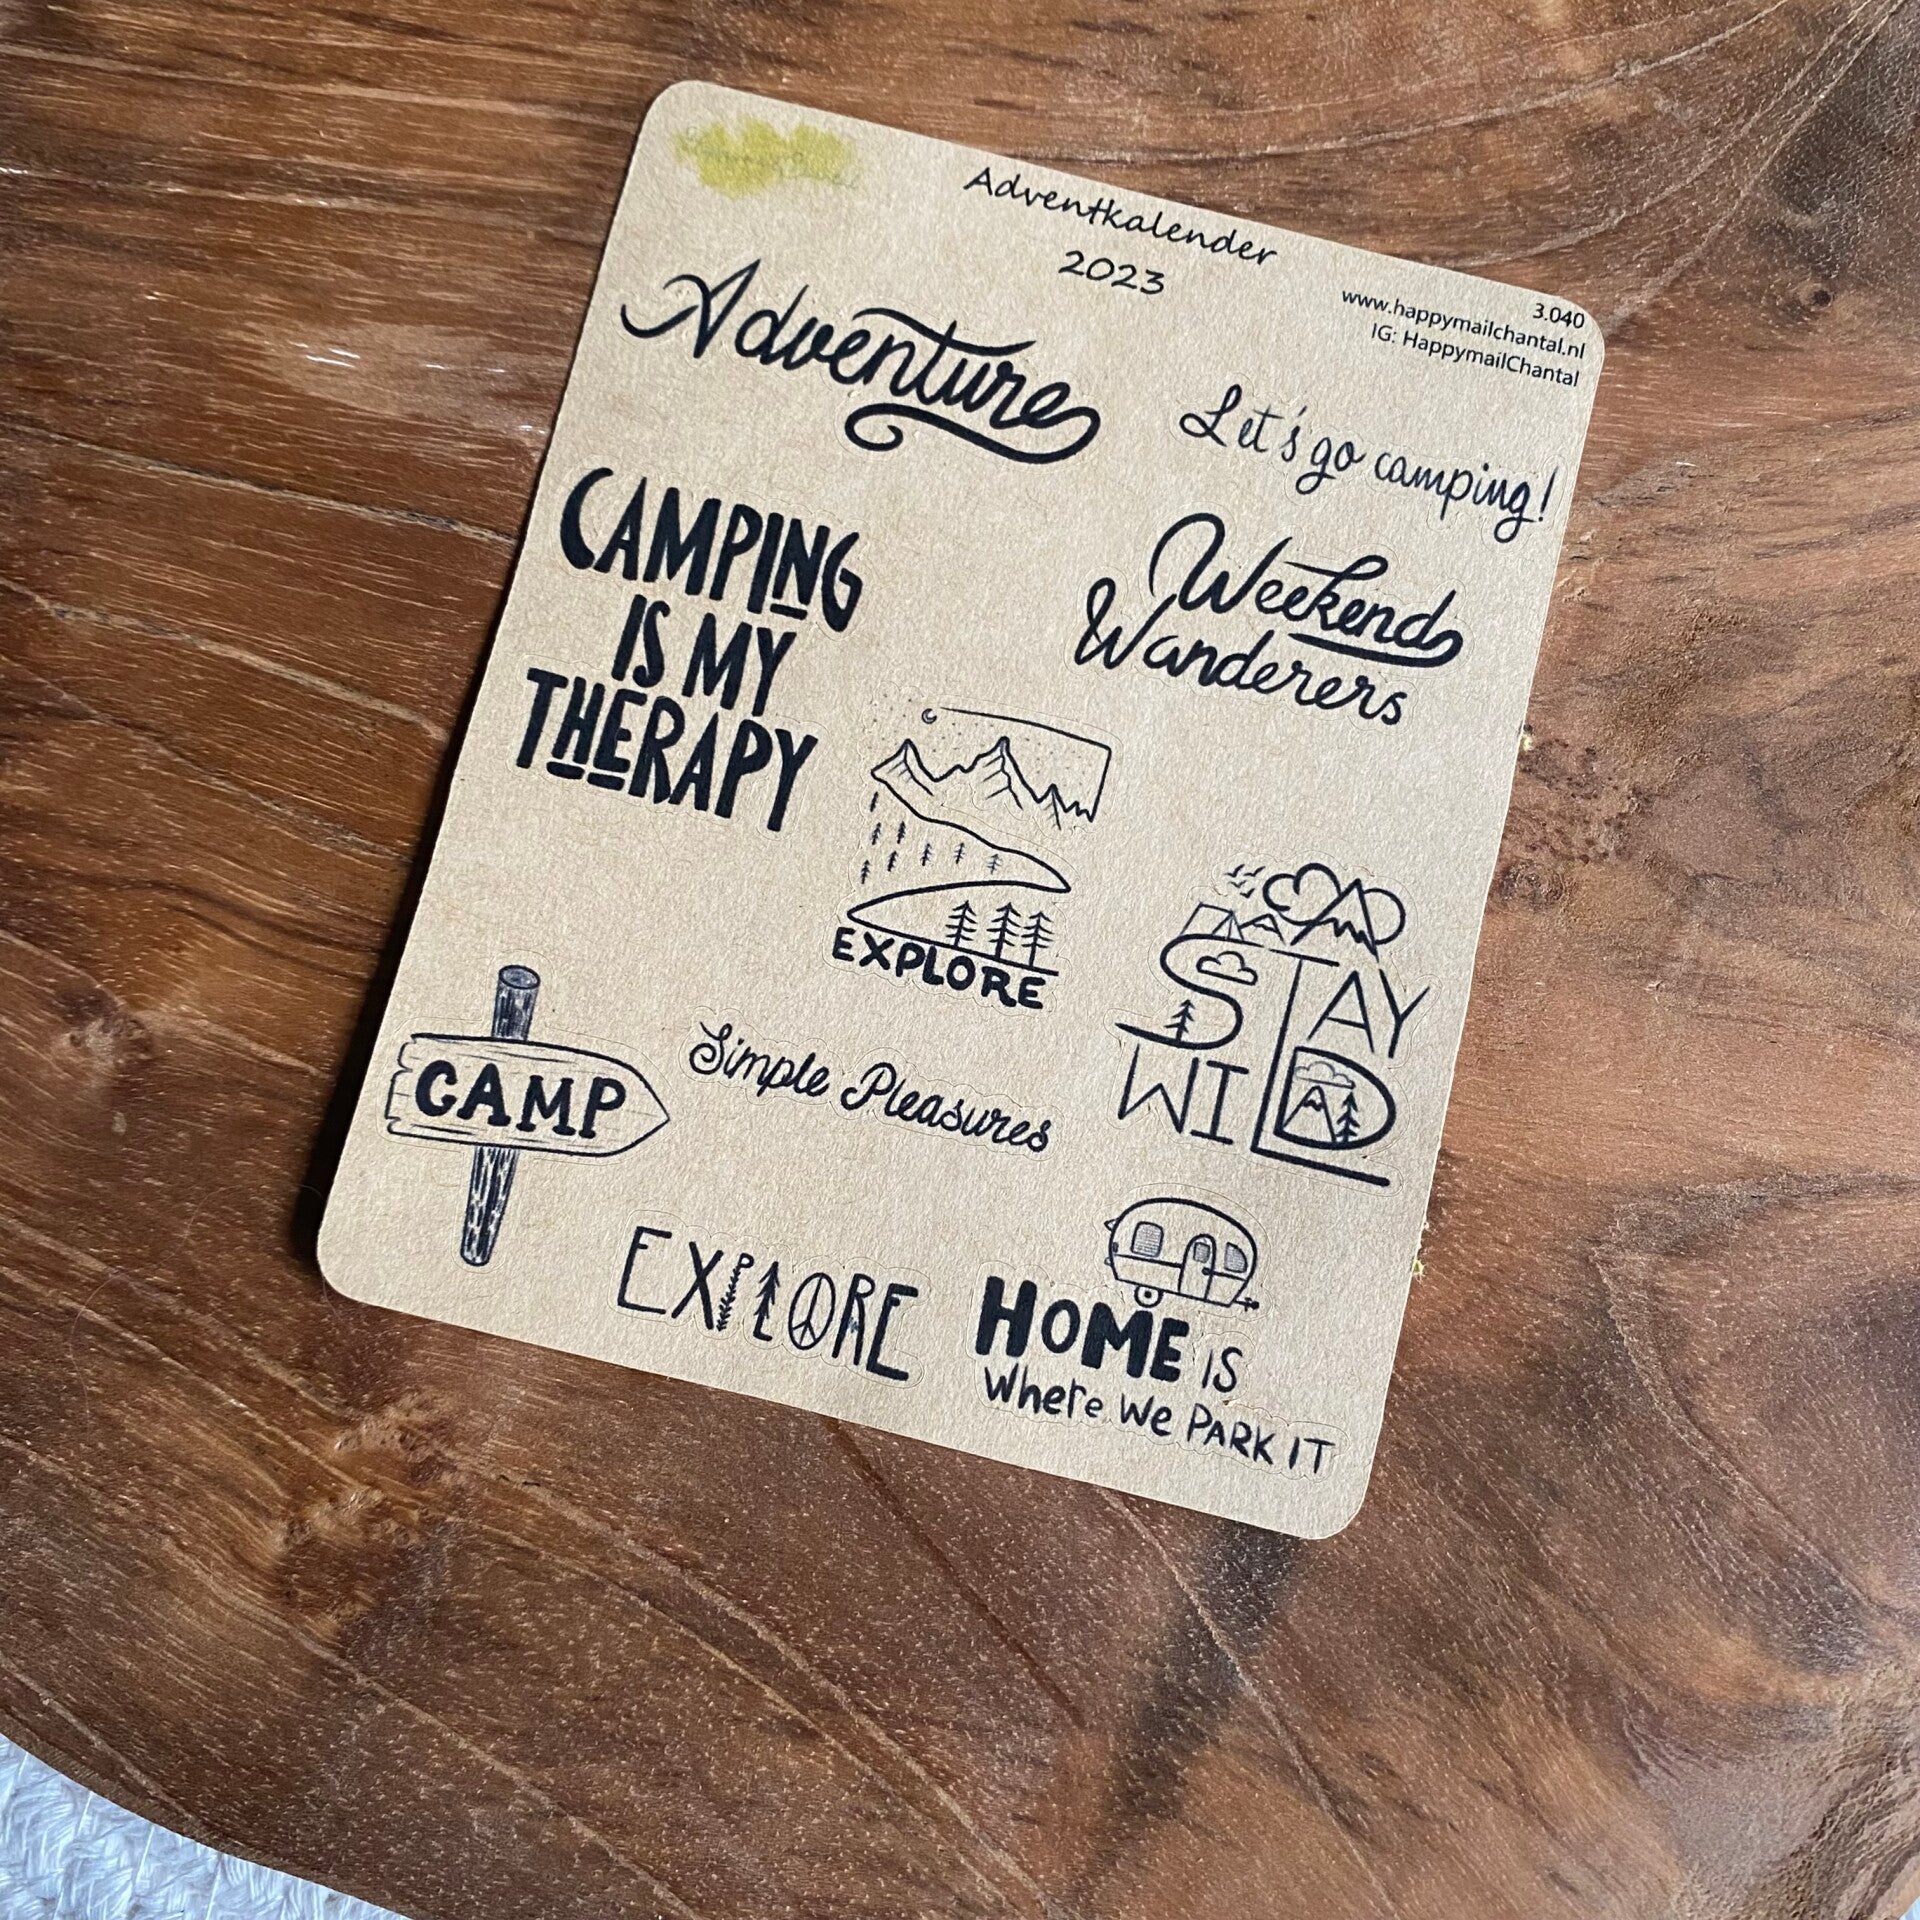 Adventkalender
2023
3.040
www.happymailchantal.nl
IG: HappymailChantal
Adventure
Let's go camping!
CAMPING
IS MY
THERAPY
Weekend
Wanderers
EXPLORE
STAY
WILD
CAMP
Simple Pleasures
EXPLORE
HOME IS
Where We PARK IT